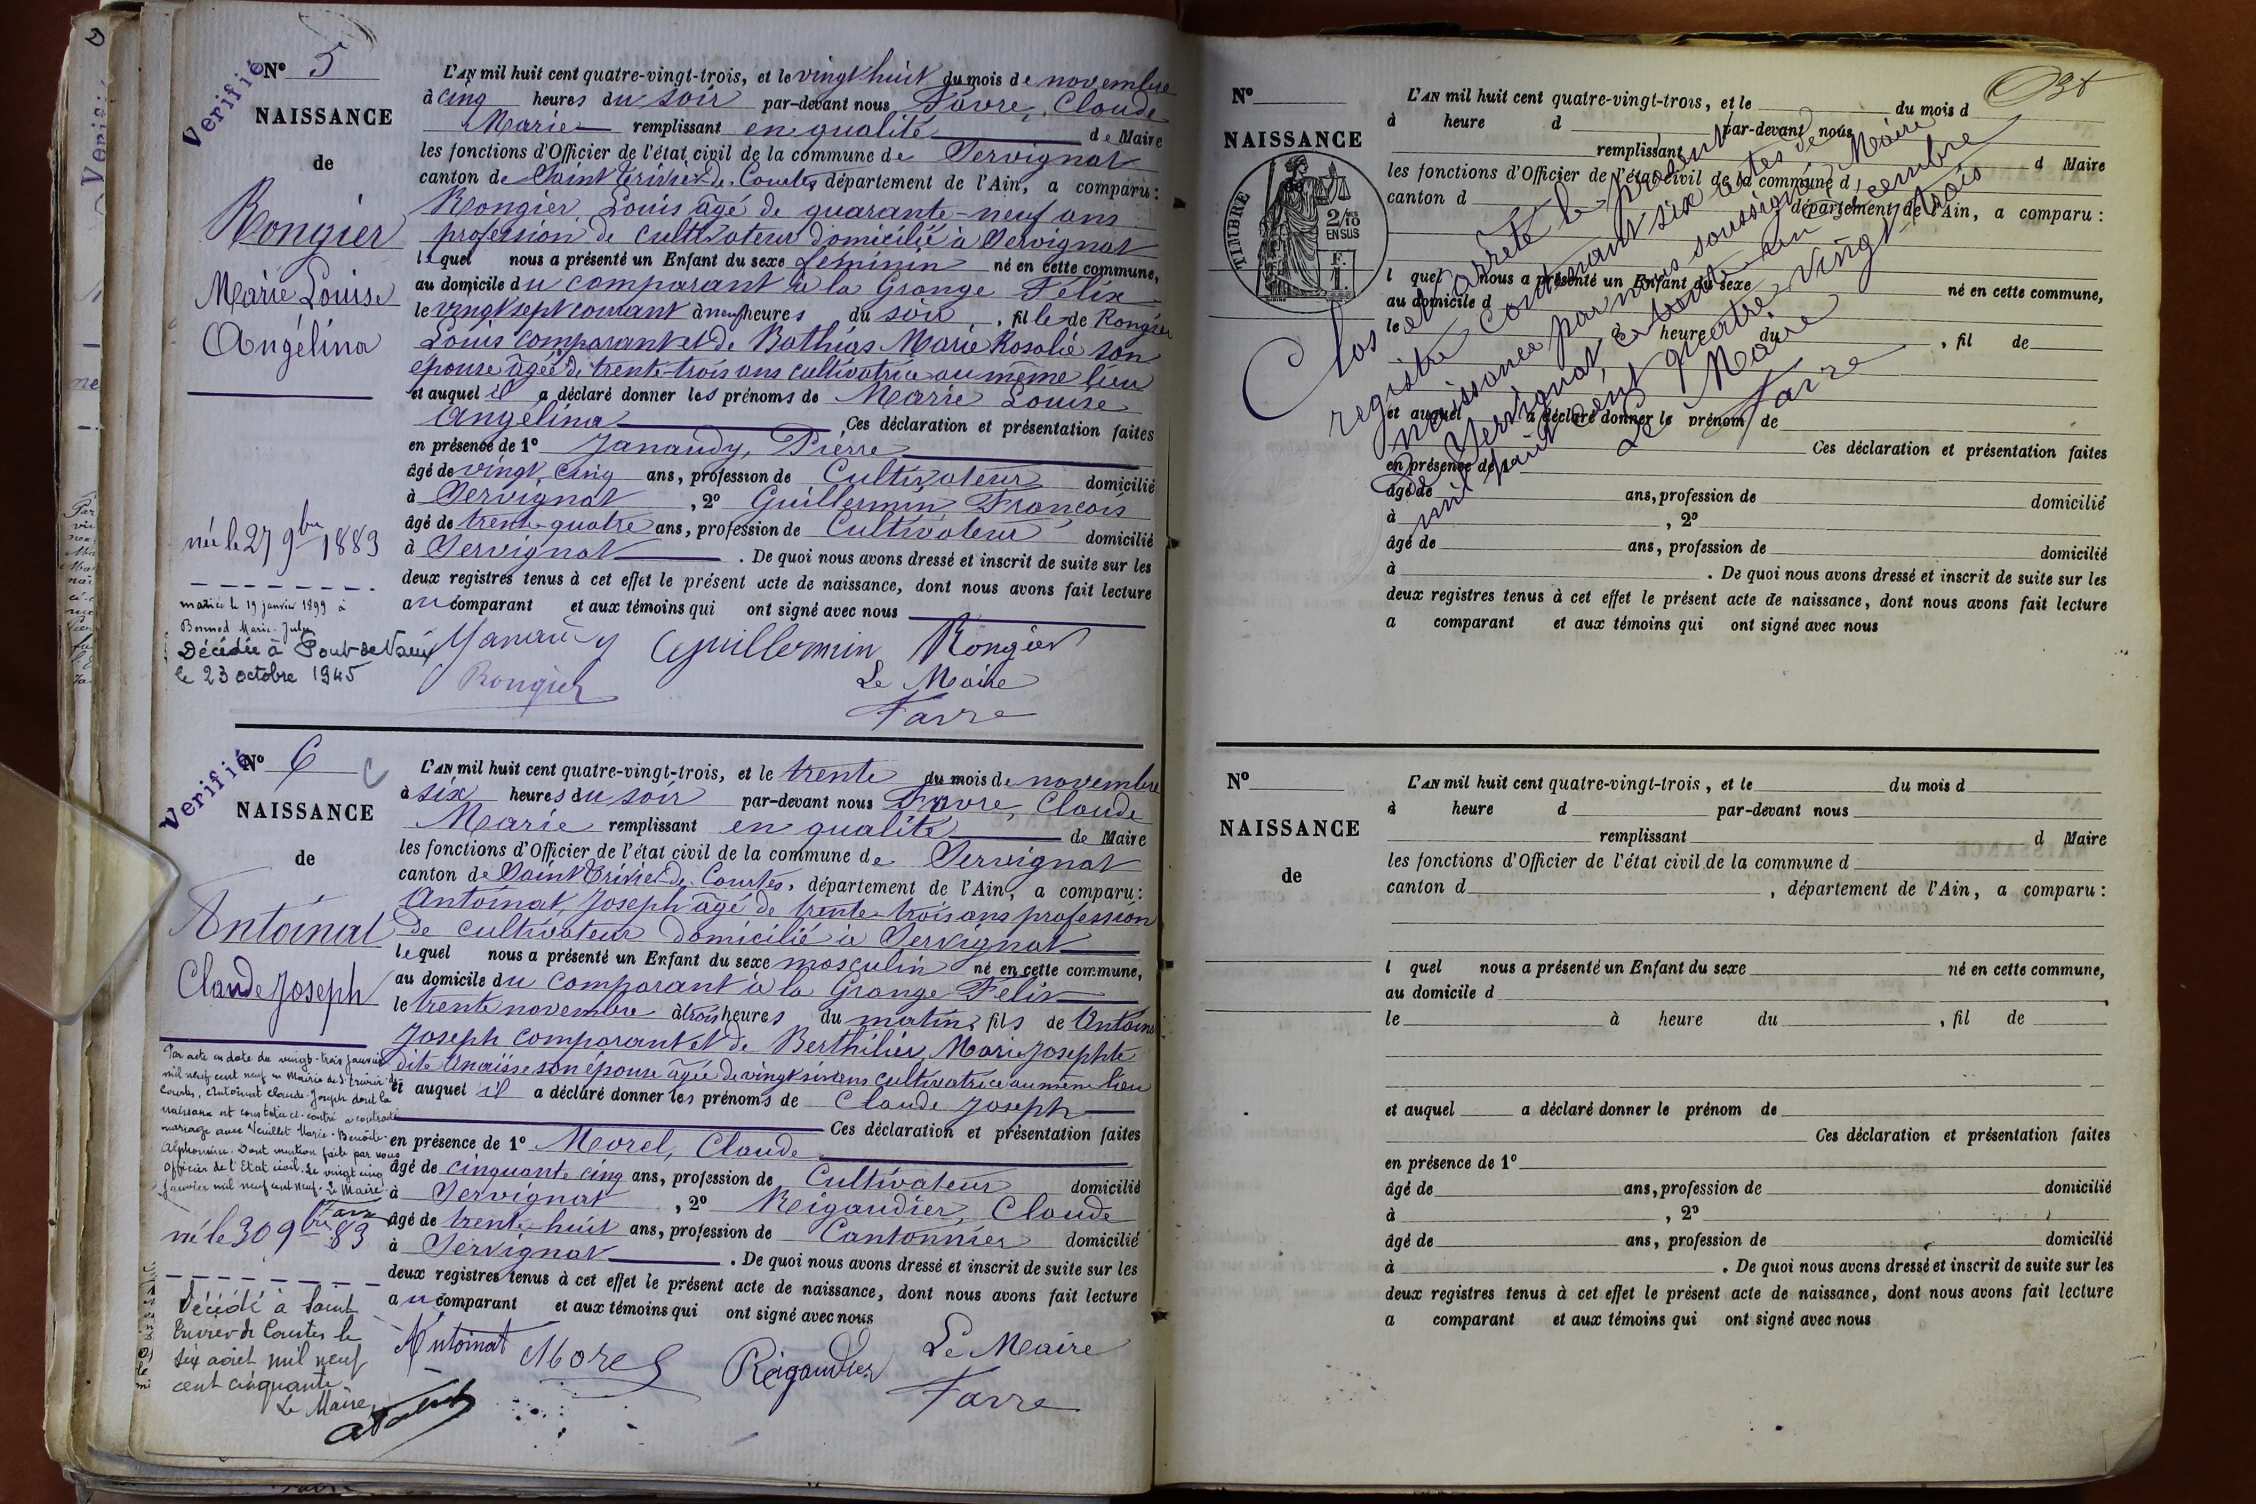 Verifié
Nº 5
NAISSANCE
de
Rongier
Marie Louise
Angélina
née le 27 9bre 1883
mariée le 19 janvier 1899 à
Décédée à Pont-de-Vaux
le 23 octobre 1945
L'AN mil huit cent quatre-vingt-trois, et le vingt huit du mois de novembre
à cinq heures du soir par-devant nous Favre, Claude
Marie remplissant en qualité de Maire
les fonctions d'Officier de l'état civil de la commune de Servignat
canton de Saint Trivier de Courtes département de l'Ain, a comparu :
Rongier Louis âgé de quarante-neuf ans
profession de cultivateur domicilié à Servignat
lequel nous a présenté un Enfant du sexe féminin né en cette commune,
au domicile du comparant à la Grange Félix
le vingt sept courant à neuf heures du soir, fille de Rongier
Louis comparant et de Bathias Marie Rosalie son
épouse âgée de trente-trois ans cultivatrice au même lieu
et auquel il a déclaré donner les prénoms de Marie Louise
Angelina, Ces déclaration et présentation faites
en présence de 1º Janaudy, Pierre
âgé de vingt, cinq ans, profession de Cultivateur domicilié
à Servignat, 2º Guillermin François
âgé de trente-quatre ans, profession de Cultivateur domicilié
à Servignat. De quoi nous avons dressé et inscrit de suite sur les
deux registres tenus à cet effet le présent acte de naissance, dont nous avons fait lecture
au comparant et aux témoins qui ont signé avec nous
Janaudy Guillermin Rongier
Rongier Le Maire
Favre
Verifié
Nº 6
NAISSANCE
de
Antoinat
Claude Joseph
Par acte en date du vingt-trois janvier
mil neuf cent neuf en Mairie de St Trivier-de
Courtes, Antoinat Claude-Joseph dont la
naissance est constatée ci-contre a contracté
mariage avec Veuillet Marie-Benoîte-
Alphonsine. Dont mention faite par nous
Officier de l'Etat civil. Le vingt cinq
Janvier mil neuf cent neuf. Le Maire
Favre
né le 30 9bre 83
Décédé à Saint
Trivier de Courtes le
six août mil neuf
cent cinquante
Le Maire,
L'AN mil huit cent quatre-vingt-trois, et le trente du mois de novembre
à six heures du soir par-devant nous Favre, Claude
Marie remplissant en qualité de Maire
les fonctions d'Officier de l'état civil de la commune de Servignat
canton de Saint Trivier de Courtes, département de l'Ain, a comparu :
Antoinat, Joseph âgé de trente-trois ans profession
de cultivateur domicilié à Servignat
lequel nous a présenté un Enfant du sexe masculin né en cette commune,
au domicile du comparant à la Grange Félix
le trente novembre à trois heures du matin, fils de Antoinat
Joseph comparant et de Berthilier, Marie Josephte
dite son épouse âgée de vingt six ans cultivatrice au même lieu
et auquel il a déclaré donner les prénoms de Claude Joseph
Ces déclaration et présentation faites
en présence de 1º Morel, Claude
âgé de cinquante cinq ans, profession de Cultivateur domicilié
à Servignat, 2º Rigaudier, Claude
âgé de trente-huit ans, profession de Cantonnier domicilié
à Servignat. De quoi nous avons dressé et inscrit de suite sur les
deux registres tenus à cet effet le présent acte de naissance, dont nous avons fait lecture
au comparant et aux témoins qui ont signé avec nous
Antoinat Morel Rigaudier Le Maire
Favre
Nº
NAISSANCE
TIMBRE
2/10 EN SUS
F.
1.
L'AN mil huit cent quatre-vingt-trois, et le du mois d
à heure d par-devant nous
remplissant d Maire
les fonctions d'Officier de l'état civil de la commune d
canton d département de l'Ain, a comparu :
l quel nous a présenté un Enfant du sexe né en cette commune,
au domicile d
le à heure du , fil de
et auquel a déclaré donner le prénom de
Ces déclaration et présentation faites
en présence de 1º
âgé de ans, profession de domicilié
à , 2º
âgé de ans, profession de domicilié
à . De quoi nous avons dressé et inscrit de suite sur les
deux registres tenus à cet effet le présent acte de naissance, dont nous avons fait lecture
a comparant et aux témoins qui ont signé avec nous
Clos et arrêté le présent
registre contenant six actes de
naissance par nous soussigné Maire
de Servignat, ce trente un décembre
mil huit cent quatre-vingt-trois
Le Maire
Favre
Nº
NAISSANCE
de
L'AN mil huit cent quatre-vingt-trois, et le du mois d
à heure d par-devant nous
remplissant d Maire
les fonctions d'Officier de l'état civil de la commune d
canton d , département de l'Ain, a comparu :
l quel nous a présenté un Enfant du sexe né en cette commune,
au domicile d
le à heure du , fil de
et auquel a déclaré donner le prénom de
Ces déclaration et présentation faites
en présence de 1º
âgé de ans, profession de domicilié
à , 2º
âgé de ans, profession de domicilié
à . De quoi nous avons dressé et inscrit de suite sur les
deux registres tenus à cet effet le présent acte de naissance, dont nous avons fait lecture
a comparant et aux témoins qui ont signé avec nous